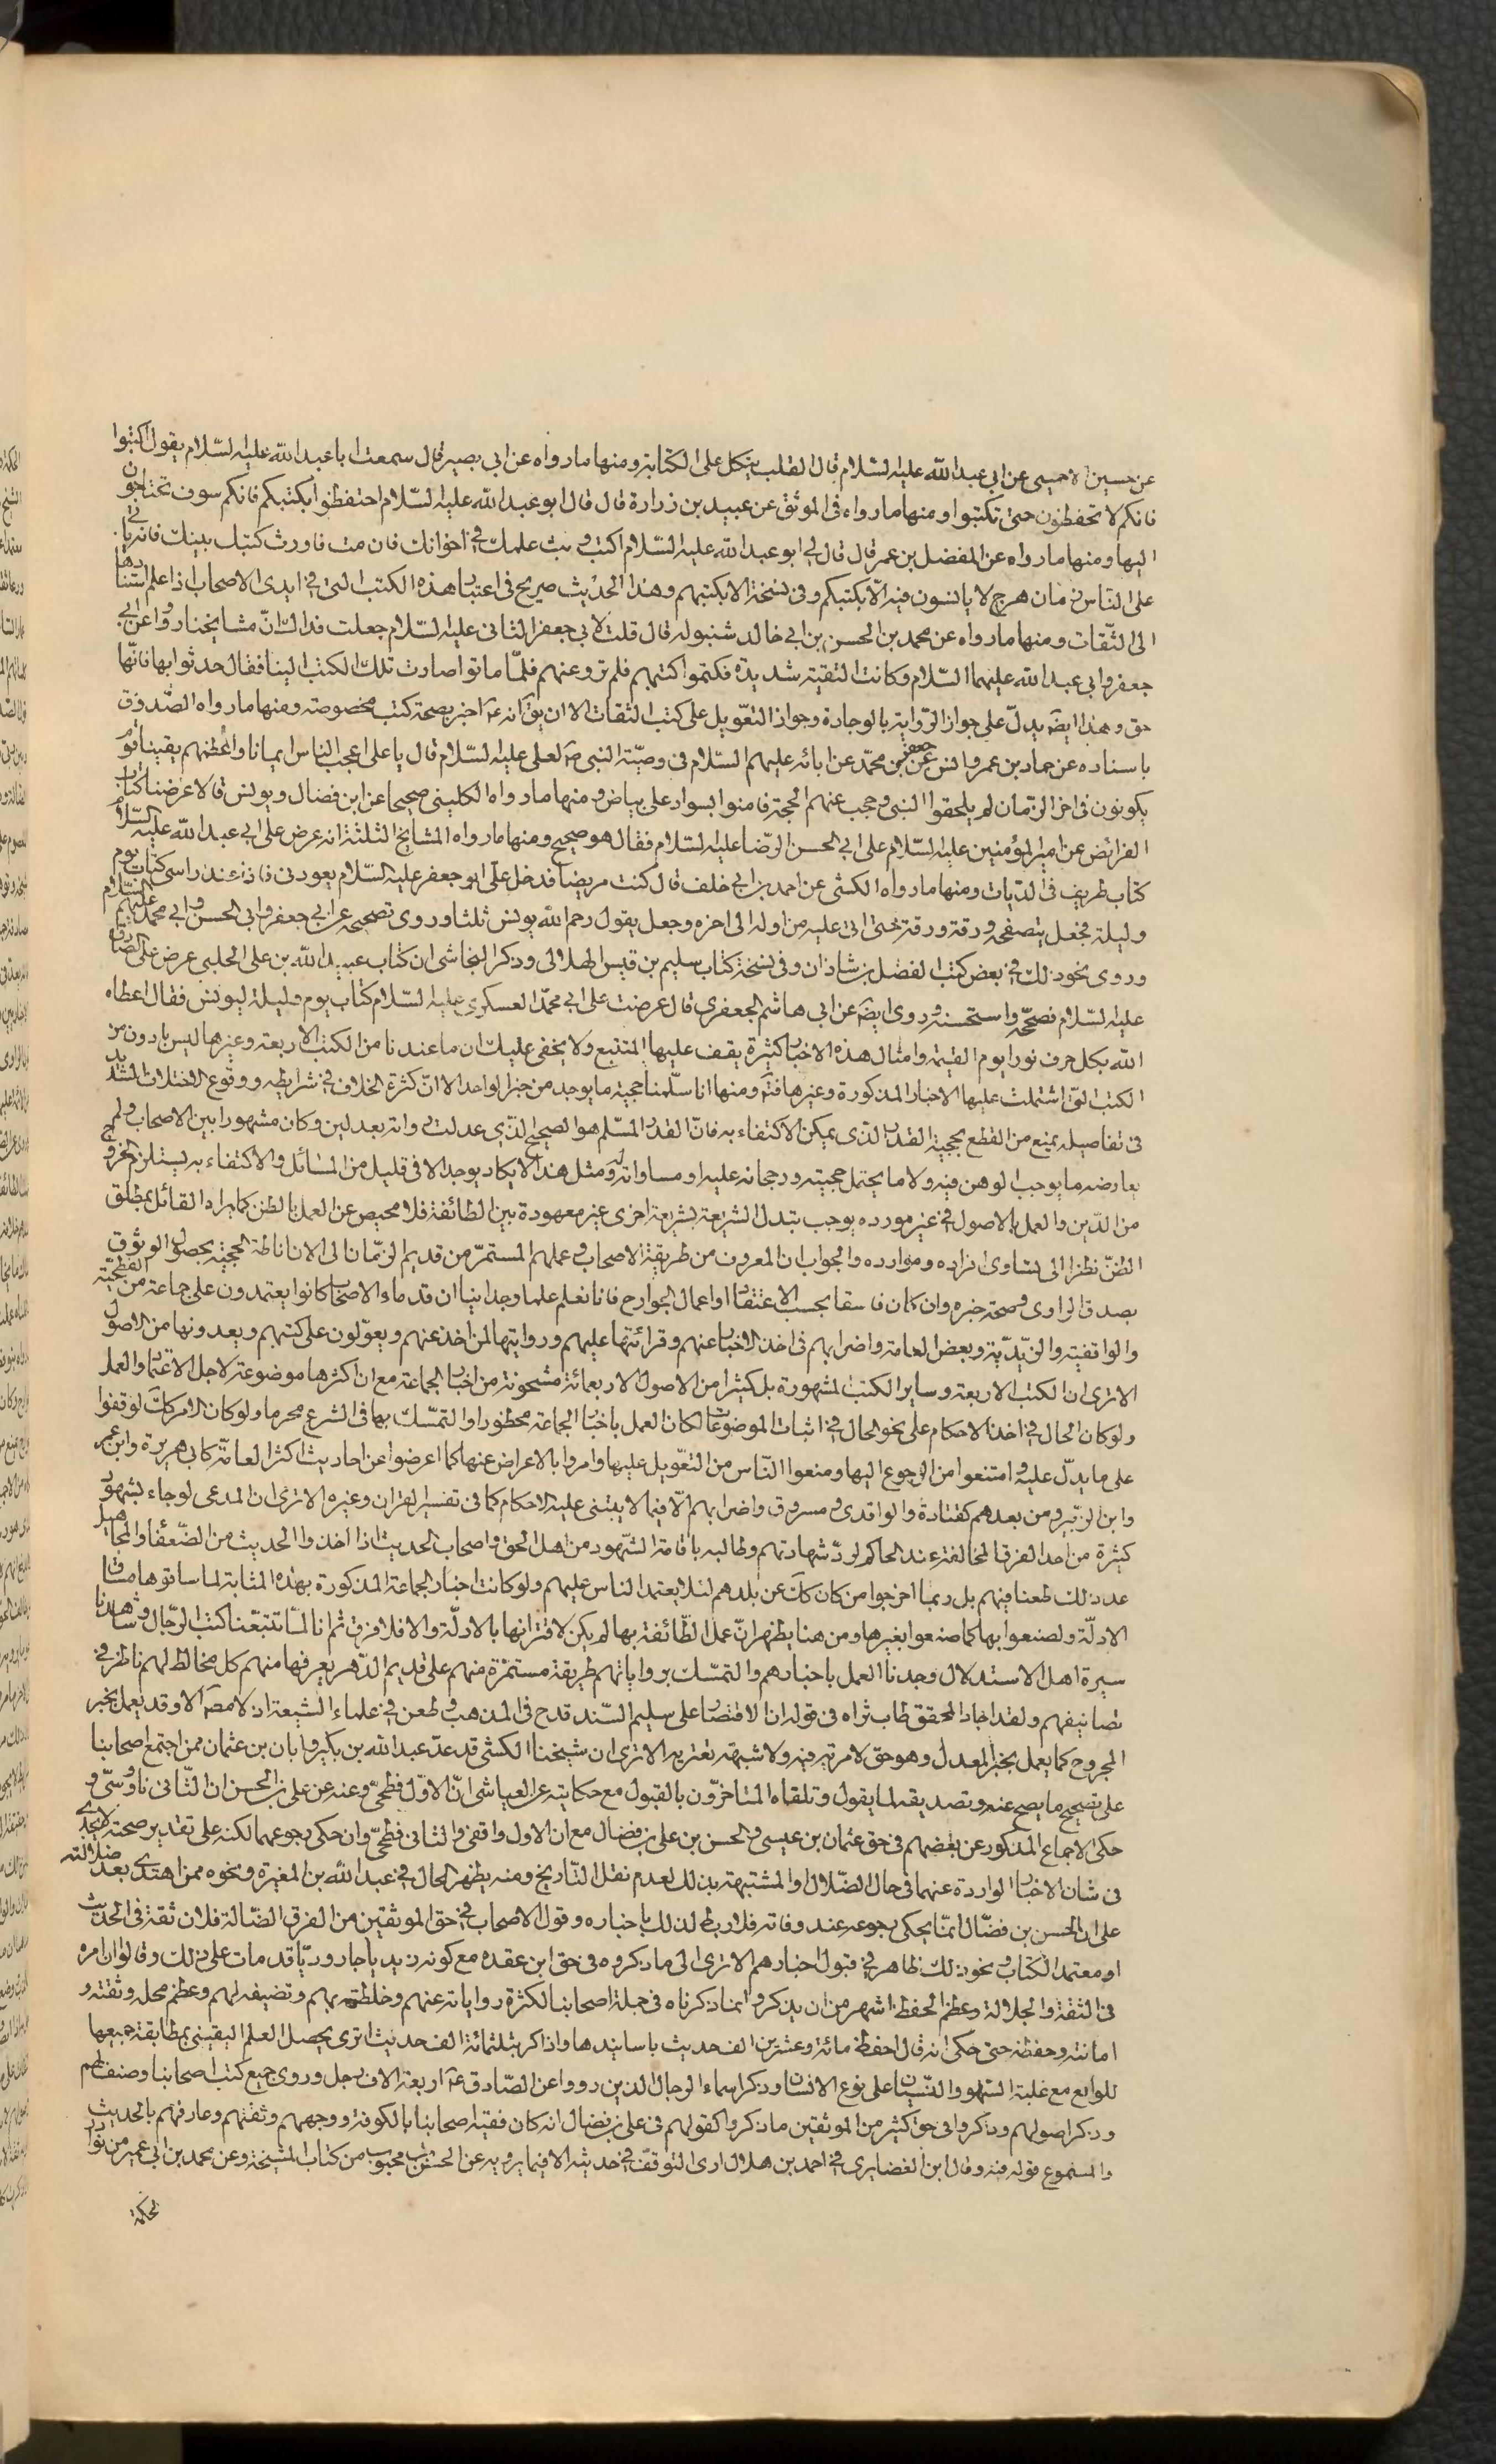 عن حسين الاحمسى عن ابى عبد الله عليه السّلام قال القلب يتكل على الكتابة ومنها ما رواه عن ابى بصير قال سمعت ابا عبد الله عليه السّلام يقول اكتبوا
فانكم لا تحفظون حتى تكتبوا ومنها ما رواه فى الموثق عن عبيد بن زرارة قال قال ابو عبد الله عليه السّلام احتفظوا بكتبكم فانكم سوف تحتاجون
اليها ومنها ما رواه عن المفضل بن عمر قال قال لى ابو عبد الله عليه السّلام اكتب وبث علمك فى اخوانك فان مت فاورث كتبك بنيك فانه ياتى
على الناس زمان هرج لا يانسون فيه الّا بكتبكم وفى نسخة الا بكتبهم وهذا الحديث صريح فى اعتبار هذه الكتب التى فى ايدى الاصحاب اذا علم استنادها
الى الثّقات ومنها ما رواه عن محمد بن الحسن بن ابى خالد شنبوله قال قلت لابى جعفر الثانى عليه السّلام جعلت فداك انّ مشايخنا رووا عن ابى
جعفر وابى عبد الله عليهما السّلام وكانت التقية شديدة فكتموا كتبهم فلم ترو عنهم فلمّا ماتوا صارت تلك الكتب الينا فقال حدثوا بها فانّها
حق وهذا ايضَ يدلّ على جواز الرّواية بالوجادة وجواز التعّويل على كتب الثقات الا ان يقَ انه عَ اخبر بصحة كتب مخصوصة ومنها ما رواه الصّدوق
باسناده عن حماد بن عمرو وانس عن جعفر بن محمّد عن ابائه عليهم السّلام فى وصيّة النبى صَ لعلى عليه السّلام قال يا على اعجب الناس ايمانا واعظمهم يقينا قوم
يكونون فى اخر الزّمان لم يلحقوا النبى وحجب عنهم الحجة فامنوا بسواد على بياض ومنها ما رواه الكلينى صحيحا عن ابن فضال ويونس قالا عرضنا كتاب
الفرائض عن امير المؤمنين عليه السّلام على ابى الحسن الرّضا عليه السّلام فقال هو صحيح ومنها ما رواه المشايخ الثلثة انه عرض على ابى عبد الله عليه السّلام
كتاب ظريف فى الدّيات ومنها ما رواه الكشى عن احمد بن ابى خلف قال كنت مريضا فدخل علىّ ابو جعفر عليه السّلام يعودنى فاذا عند راسى كتاب يوم
وليلة فجعل يتصفحه ورقة ورقة حتى اتى عليه من اوله الى اخره وجعل يقول رحم الله يونس ثلثا وروى تصحيحه عن ابى جعفر وابى الحسن وابى محمد عليهم السّلام
وروى نحو ذلك فى بعض كتب الفضل بن شاذان وفى نسخة كتاب سليم بن قيس الهلالى وذكر النجاشى ان كتاب عبيد الله بن على الحلبى عرض على الصّادق
عليه السّلام فصحّحه واستحسنه وروى ايضَ عن ابى هاشم الجعفرى قال عرضت على ابى محمّد العسكرى عليه السّلام كتاب يوم وليلة ليونس فقال اعطاه
الله بكل حرف نورا يوم القيمة وامثال هذه الاخبار كثيرة يقف عليها المتتبع ولا يخفى عليك ان ما عندنا من الكتب الاربعة وغيرها ليس بادون من
الكتب التى اشتملت عليها الاخبار المذكورة وغيرها فتَم ومنها انا سلّمنا حجية ما يوجد من خبر الواحد الا انّ كثرة الخلاف فى شرايطه ووقوع الاختلاف الشديد
فى تفاصيله يمنع من القطع بحجية القدر الذى يمكن الاكتفاء به فانّ القدر المسلّم هو الصحيح الذّى عدلت رواته بعدلين وكان مشهورا بين الاصحاب ولم
يعارضه ما يوجب الوهن فيه ولا ما يحتمل حجيته ورجحانه عليه او مساواته له ومثل هذا لا يكاد يوجد الا فى قليل من المسائل والاكتفاء به يستلزم الخروج
من الدّين والعمل بالاصول فى غير مورده يوجب تبدل الشريعة بشريعة اخرى غير معهودة بين الطائفة فلا محيص عن العمل بالظن كما يراه القائل بمطلق
الظنّ نظرا الى تساوى افراده وموارده والجواب ان المعروف من طريقة الاصحاب وعملهم المستمرّ من قديم الزمّان الى الان اناطة الحجية بحصول الوثوق
بصدق الراوى وصحة خبره وان كان فاسقا بحسب الاعتقاد او اعمال الجوارح فانا نعلم علما وجدانيا ان قدماء الاصحاب كانوا يعتمدون على جماعة من الفطحيّة
والواقفية والزيديّة وبعض العامة واضرابهم فى اخذ الاخبار عنهم وقرائتها عليهم وروايتها لمن اخذ عنهم ويعوّلون على كتبهم ويعدونها من الاصول
الاترى ان الكتب الاربعة وساير الكتب المشهورة بل كثيرا من الاصول الاربعمائة مشحونة من اخبار الجماعة مع ان اكثرها موضوعة لاجل الاعتماد والعمل
ولو كان الحال فى اخذ الاحكام على نحو الحال فى اثبات الموضوعات لكان العمل باخبار الجماعة محظورا والتمسّك بها فى الشرع محرما ولو كان الامر كذلك لوقفوا
على ما يدلّ عليه وامتنعوا من الرجوع اليها ومنعوا النّاس من التعّويل عليها وامروا بالاعراض عنها كما اعرضوا عن احاديث اكثر العامّة كابى هريرة وابن عمر
وابن الزبير ومن بعدهم كقتادة والواقدى ومسروق واضرابهم الّا فيما لا يبتنى عليه الاحكام كما فى تفسير القران وغيره الاترى ان المدعى لو جاء بشهود
كثيرة من احد الفرق المخالفة عند الحاكم لردّ شهادتهم وطالبه باقامة الشّهود من اهل الحق واصحاب الحديث اذا اخذوا الحديث من الضّعفاء والمجاهيل
عدد ذلك طعنا فيهم بل ربما اخرجوا من كان كذلك عن بلدهم لئلا يعتمد الناس عليهم ولو كانت اخبار الجماعة المذكورة بهذه المثابة لما ساقوها مساق
الادلّة ولصنعوا بها كما صنعوا بغيرها ومن هنا يظهر انّ عمل الطّائفة بها لم يكن لاقترانها بالادلّة والا فلا فرق ثم انا لما تتبّعنا كتب الرّجال وشاهدنا
سيرة اهل الاستدلال وجدنا العمل باخبارهم والتمسّك برواياتهم طريقة مستمرّة منهم على قديم الدّهر يعرفها منهم كل مخالط لهم ناظر فى
تصانيفهم ولقد اجاد المحقق طاب ثراه فى قوله ان الاقتصار على سليم السّند قدح فى المذهب وطعن فى علماء الشيعة اذ لا مصنَف الا وقد يعمل بخبر
المجروح كما يعمل بخبر المعدل وهو حق لا مرية فيه ولا شبهة تعتريه الاترى ان شيخنا الكشى قد عدّ عبد الله بن بكير وابان بن عثمان ممن اجتمع اصحابنا
على تصحيح ما يصح عنهم وتصديقه لما يقول وتلقاه المتاخرّون بالقبول مع حكايته عن العياشى انّ الاوّل فطحىّ وعنه عن على بن الحسن ان الثّانى ناووسّى و
حكى الاجماع المذكور عن بعضهم فى حق عثمان بن عيسى والحسن بن على بن فضال مع ان الاول واقفى والثانى فطحىّ وان حكى رجوعهما لكنه على تقدير صحته لا يجدى
فى شان الاخبار الواردة عنهما فى حال الضّلال او المشتبهة بذلك لعدم نقل التّاريخ ومنه يظهر الحال فى عبد الله بن المغيرة ونحوه ممن اهتدى بعد ضلالته
على ان الحسن بن فضّال انمّا يحكى رجوعه عند وفاته فلا ربط لذلك باخباره وقول الاصحاب فى حق الموثقين من الفرق الضّالة فلان ثقة فى الحديث
او معتمد الكتاب ونحو ذلك ظاهر فى قبول اخبارهم الاترى الى ما ذكروه فى حق ابن عقده مع كونه زيديا جاروديّا قد مات على ذلك وقالوا ان امره
فى الثقة والجلالة وعظم الحفظ اشهر من ان يذكر وانما ذكرناه فى جملة اصحابنا لكثرة رواياته عنهم وخلطته بهم وتصنيفه لهم وعظم محله وثقته و
امانته وحفظه حتى حكى انه قال احفظ مائة وعشرين الف حديث باسانيدها واذاكر بثلثمائة الف حديث اترى يحصل العلم اليقينى بمطابقة جميعها
للواقع مع غلبة السّهو والنّسيان على نوع الانسان وذكر اسماء الرجال الذين رووا عن الصّادق عَ اربعة الاف رجل وروى جميع كتب اصحابنا وصنف لهم
وذكر اصولهم وذكروا فى حق كثير من الموثقين ما ذكروا كقولهم فى على بن فضال انه كان فقيه اصحابنا بالكوفة ووجههم وثقتهم وعارفهم بالحديث
والمسموع قوله فيه وقال ابن الغضايرى فى احمد بن هلال ارى التوقفّ فى حديثه الا فيما يرويه عن الحسن بن محبوب من كتاب المشيخة وعن محمد بن ابى عمير من نوادر